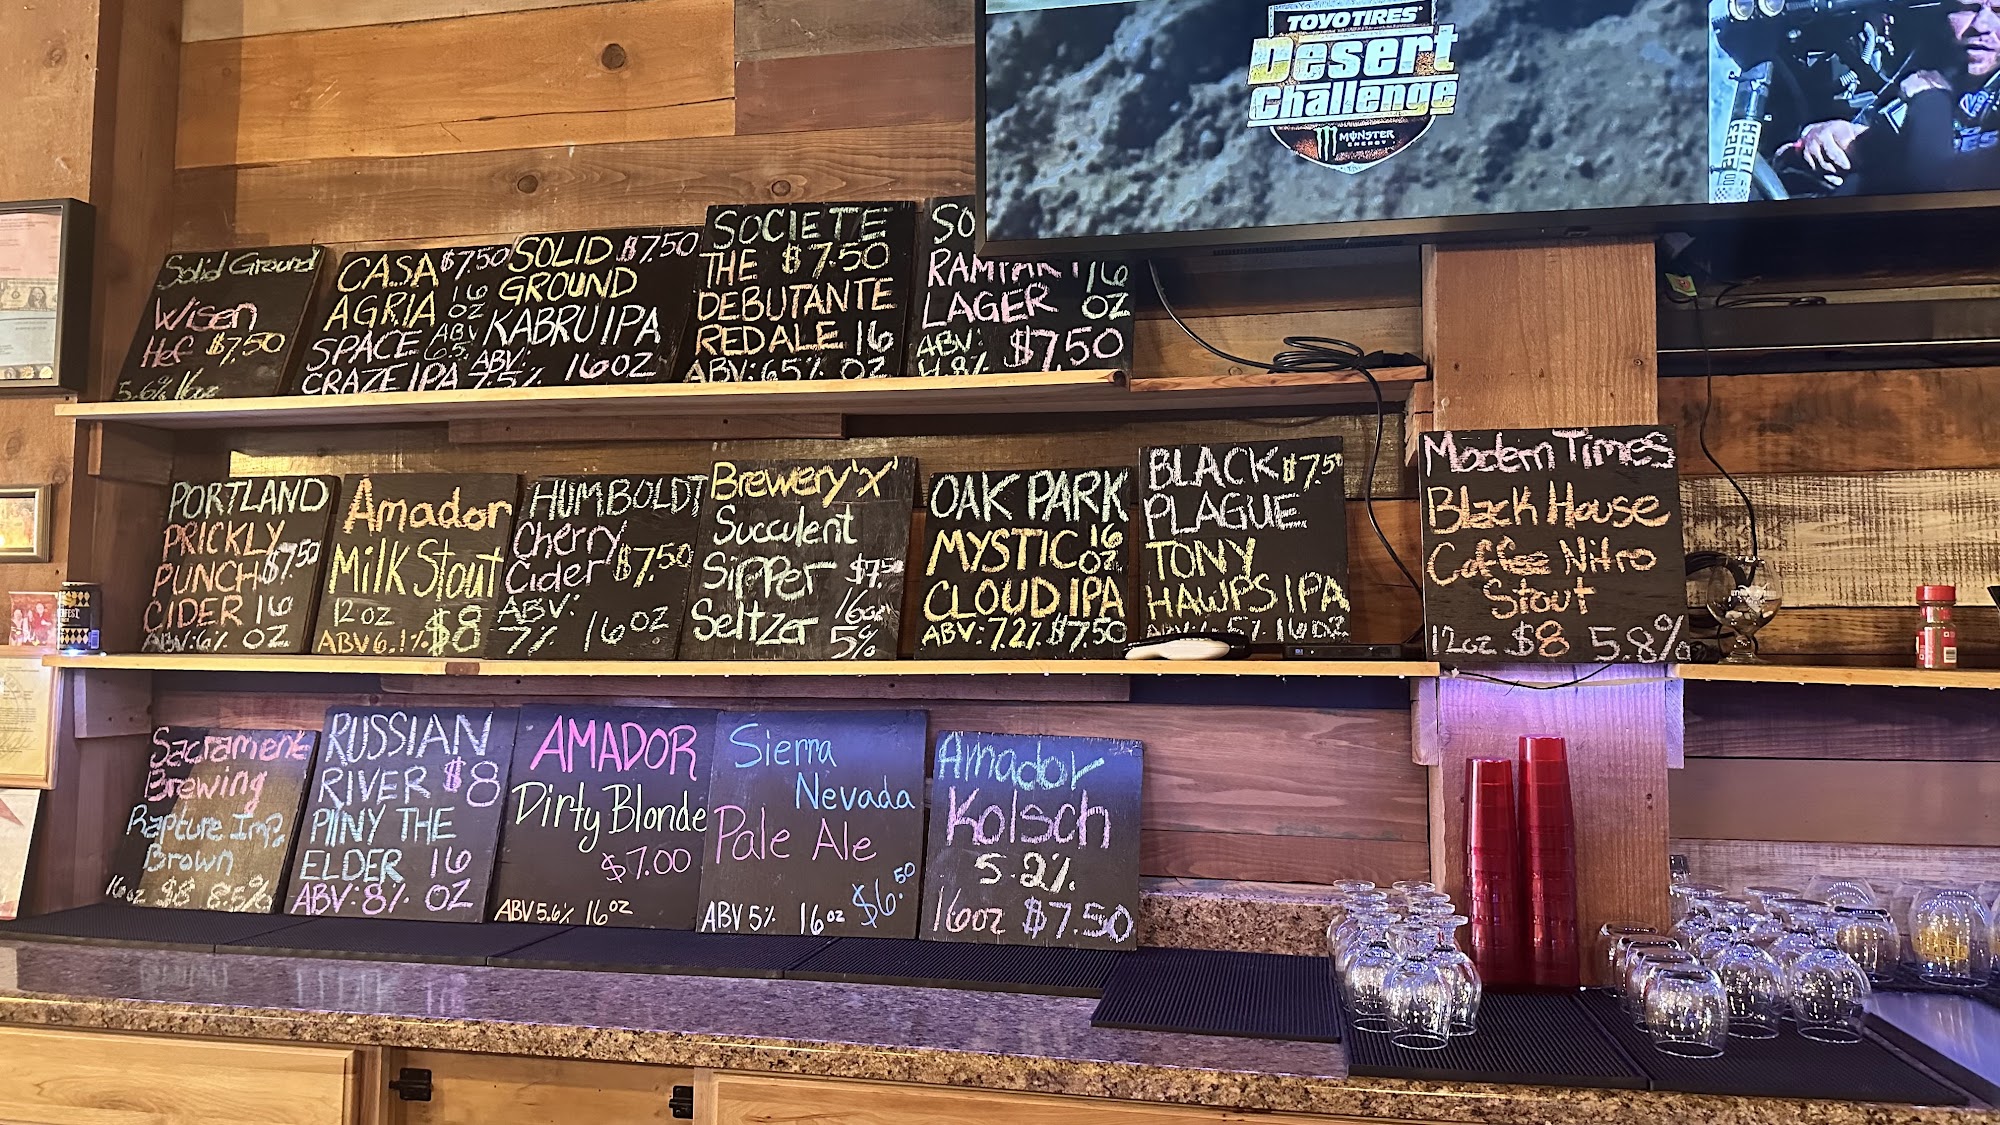 TOYO TIRES
Desert
Challenge
MONSTER
ENERGY
Solid Ground
Wisen
Hef $7.50
5.6% 16oz
CASA $7.50
AGRIA 16
OZ
SPACE ABV
6.5
CRAZE IPA
SOLID $7.50
GROUND
KABRU IPA
ABV:
7.5% 16OZ
SOCIETE
THE $7.50
DEBUTANTE
RED ALE 16
ABV:6.5% OZ
SO
16
LAGER OZ
ABV: $7.50
4.8%
PORTLAND
PRICKLY
PUNCH $7.50
CIDER 16
ABV:6% OZ
Amador
Milk Stout
12OZ
ABV 6.1% $8
HUMBOLDT
Cherry
Cider $7.50
ABV:
7% 16OZ
Brewery 'X'
Succulent
Sipper $7.50
Seltzer 16oz
5%
OAK PARK
MYSTIC 16
OZ
CLOUD IPA
ABV:7.2% $7.50
BLACK $7.50
PLAGUE
TONY
HAWPS IPA
16OZ
Modern Times
Black House
Coffee Nitro
Stout
12oz $8 5.8%
Sacramento
Brewing
Rapture Imp.
Brown
16oz $8 8.5%
RUSSIAN
RIVER $8
PLINY THE
ELDER 16
ABV:8% OZ
AMADOR
Dirty Blonde
$7.00
ABV 5.6% 16oz
Sierra
Nevada
Pale Ale
ABV 5% 16oz $6.50
Amador
Kolsch
5.2%
16oz $7.50